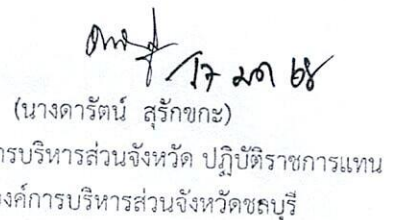 17 มค 68
(นางดารัตน์ สุรักขกะ)
การบริหารส่วนจังหวัด ปฏิบัติราชการแทน
องค์การบริหารส่วนจังหวัดชลบุรี